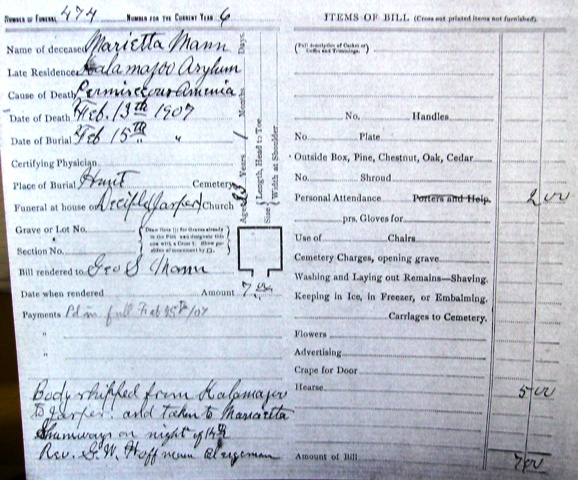 NUMBER OF FUNERAL 474 NUMBER FOR THE CURRENT YEAR 6
Name of deceased Marietta Mann
Late Residence Kalamazoo Asylum
Cause of Death Pernisecour Amenia
Date of Death Feb. 13th 1907
Date of Burial Feb 15th " "
Certifying Physician
Place of Burial Hunt Cemetery
Funeral at house or Deciple Jasper Church
Grave or Lot No.
Section No.
Bill rendered to Geo S Mann
Date when rendered Amount 7.00
Payments Pd in full Feb 25th/07
"
"
Body shipped from Kalamazoo
to Jasper. and taken to Marietta
Shumways on night of 14th
Rev. G. W. Hoffman Clergeman
Age 83 Years / Months Days.
Size { Length, Head to Toe
Width at Shoulder
ITEMS OF BILL (Cross out printed items not furnished)
(Full description of Casket or
Coffin and Trimmings.
No. Handles
No. Plate
Outside Box, Pine, Chestnut, Oak, Cedar
No. Shroud
Personal Attendance Porters and Help. 2 00
prs. Gloves for
Use of Chairs
Cemetery Charges, opening grave
Washing and Laying out Remains—Shaving.
Keeping in Ice, in Freezer, or Embalming.
Carriages to Cemetery.
Flowers
Advertising
Crape for Door
Hearse 5 00
Amount of Bill 7 00